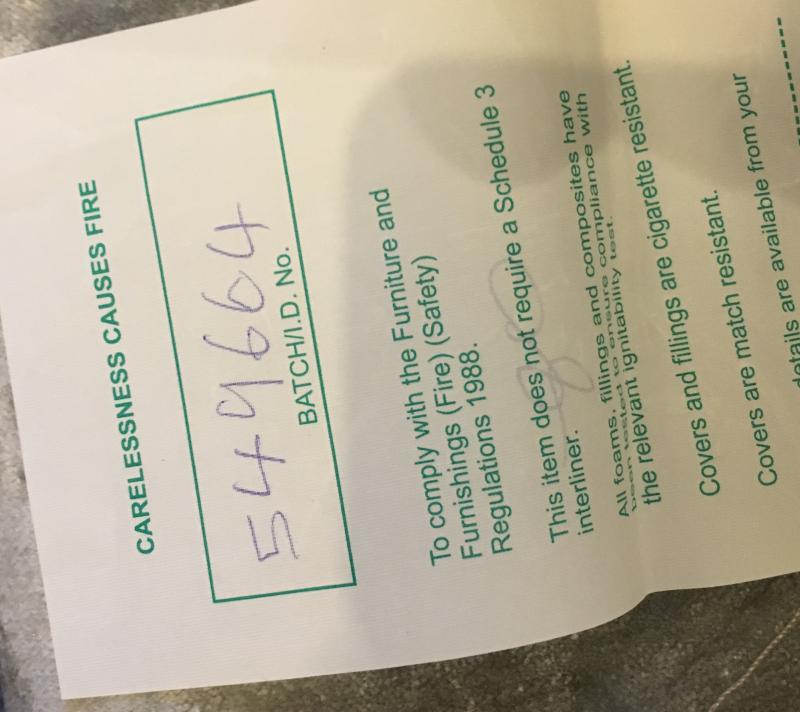 CARELESSNESS CAUSES FIRE
549664
BATCH/I.D. No.
To comply with the Furniture and
Furnishings (Fire) (Safety)
Regulations 1988.
This item does not require a Schedule 3
interliner.
All foams, fillings and composites have
been tested to ensure compliance with
the relevant ignitability test.
Covers and fillings are cigarette resistant.
Covers are match resistant.
details are available from your